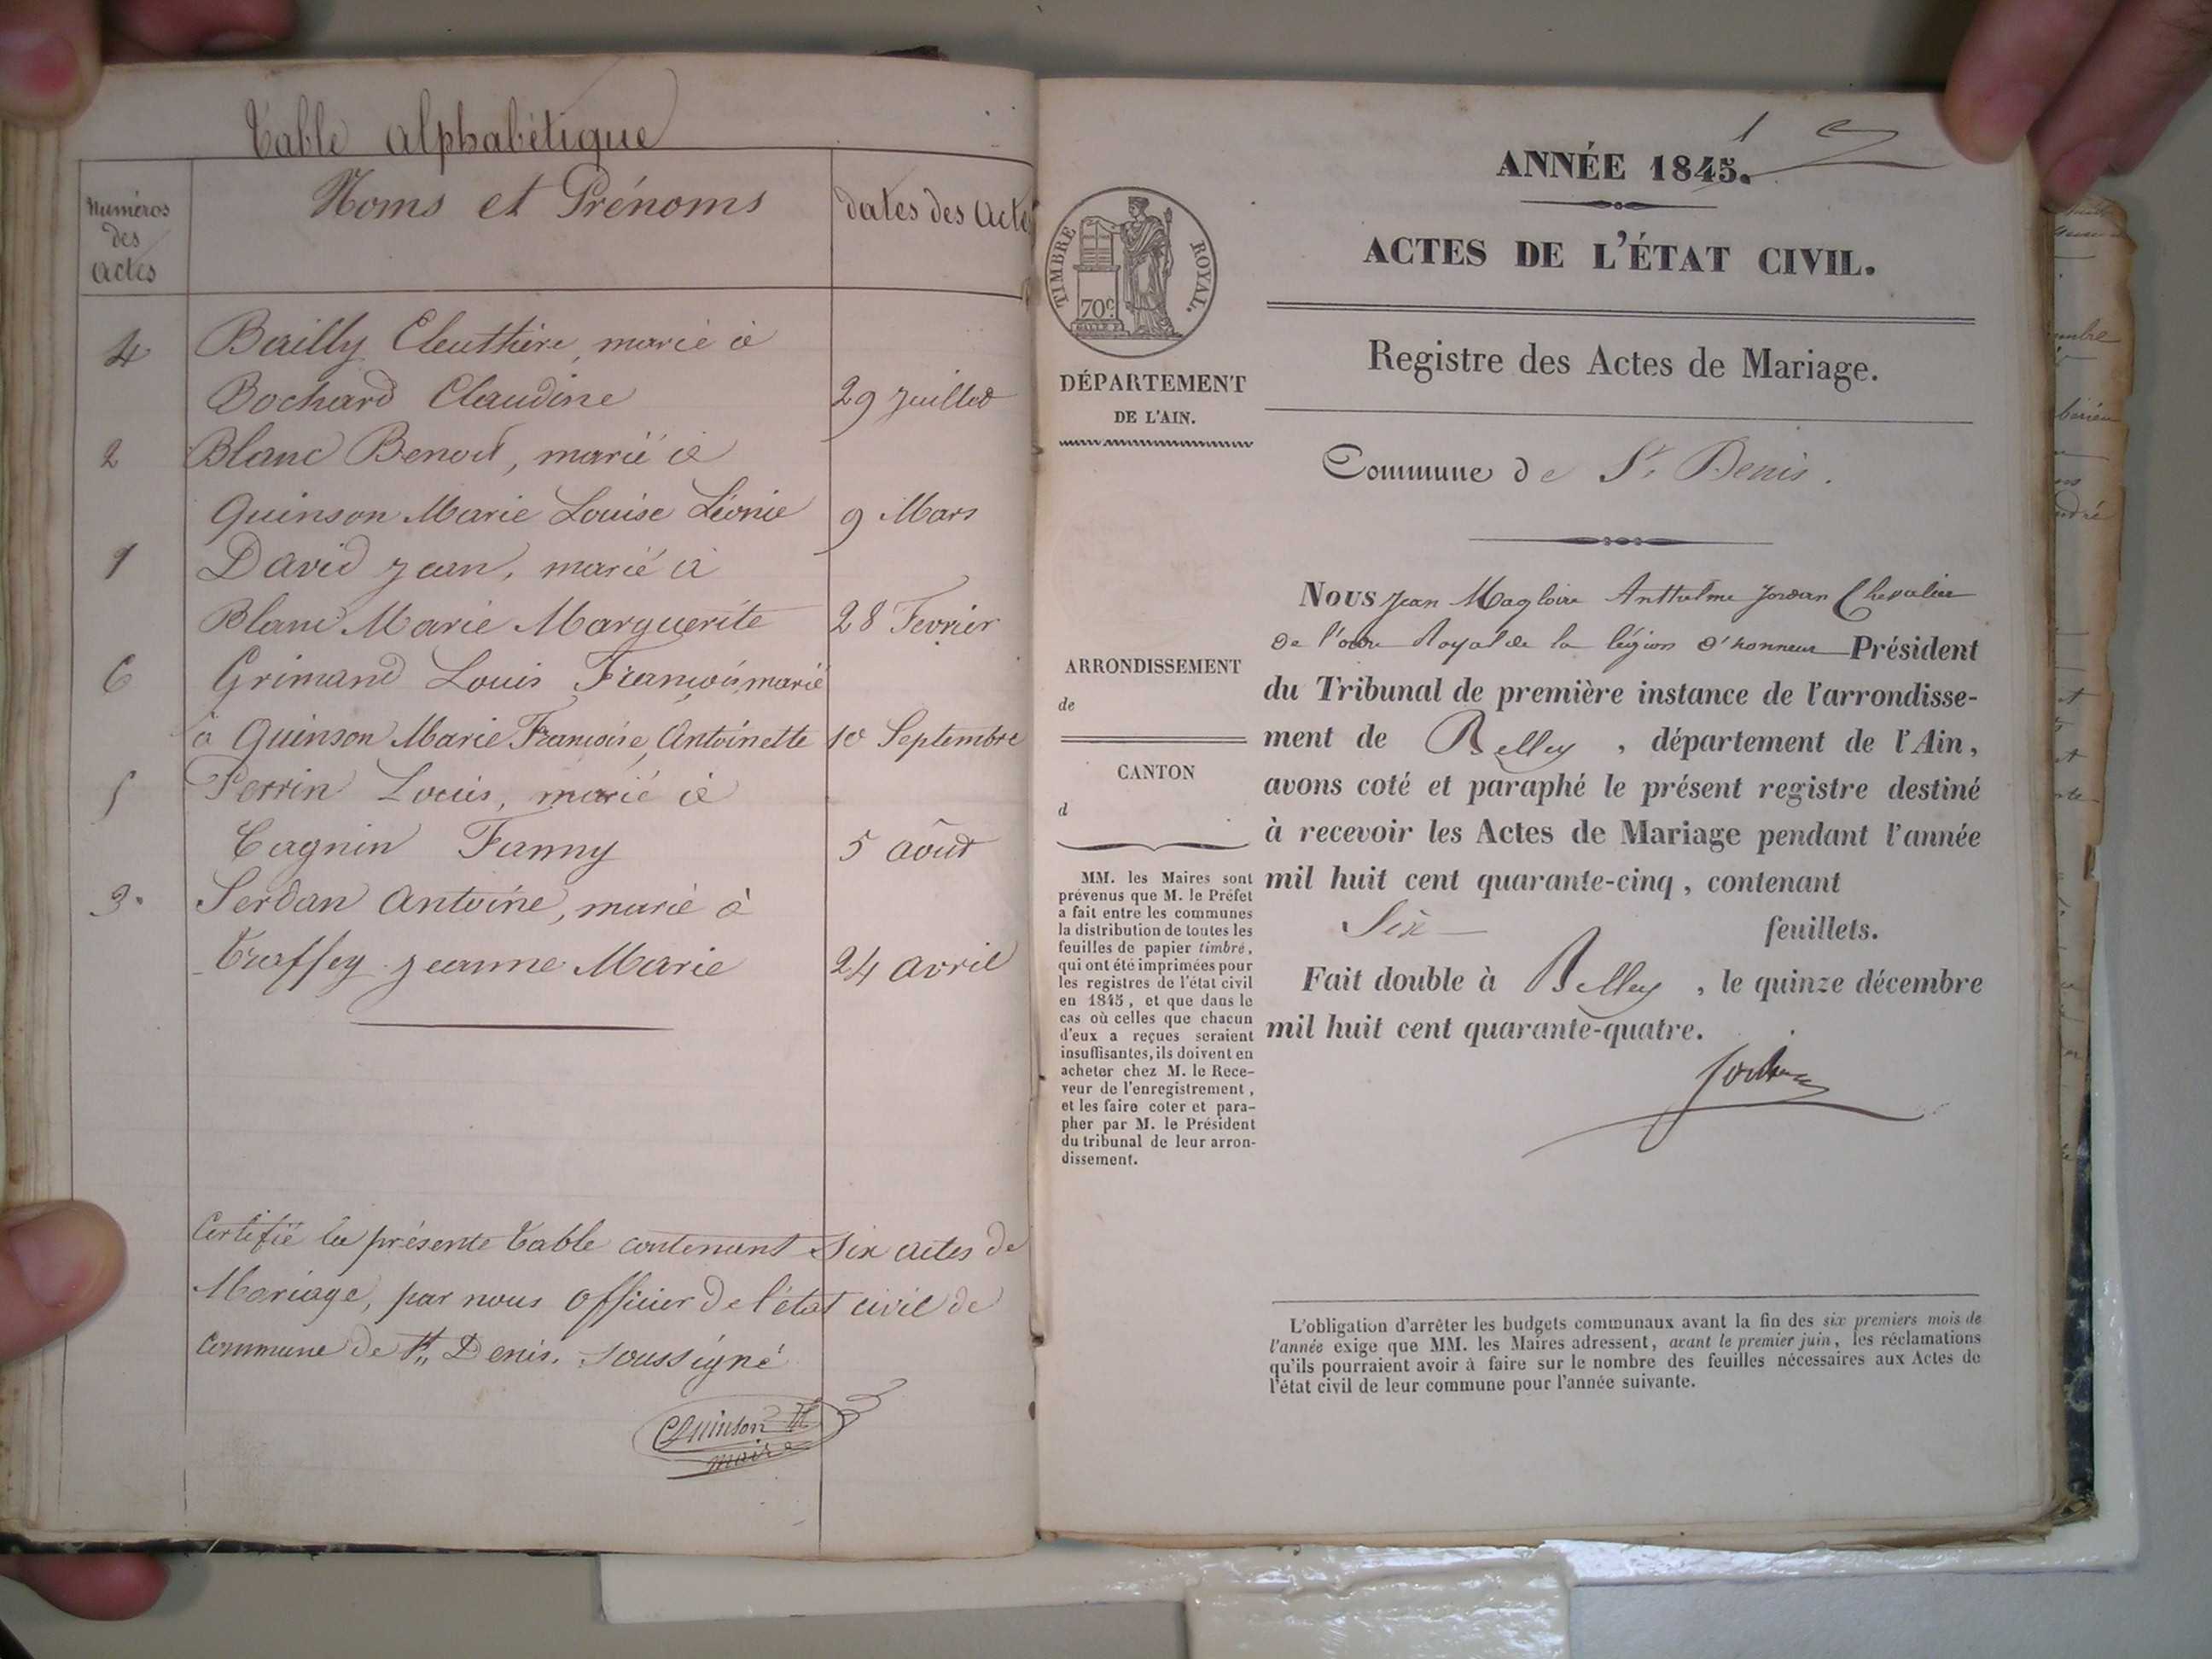 Table alphabétique
Numéros des actes
Noms et Prénoms
dates des Actes
4 Bailly Eleuthère, marié à
Bochard Claudine 29 Juillet
2 Blanc Benoit, marié à
Quinson Marie Louise Léonie 9 Mars
1 David Jean, marié à
Blanc Marie Marguerite 28 Fevrier
6 Grimand Louis François, marié
à Quinson Marie Françoise Antoinette 10 Septembre
5 Perrin Louis, marié à
Cagnin Fanny 5 août
3. Serdan Antoine, marié à
Traffey Jeanne Marie 24 avril
Certifié la présente table contenant six actes de
Mariage, par nous officier de l'état civil de
commune de St. Denis. soussigné
Quinson
maire
1
ANNÉE 1845.
ACTES DE L'ÉTAT CIVIL.
TIMBRE ROYAL.
70c
Registre des Actes de Mariage.
DÉPARTEMENT
DE L'AIN.
Commune de St. Denis.
Nous Jean Magloire Anthelme Jordan Chevalier
de l'ordre Royal de la légion d'honneur Président
du Tribunal de première instance de l'arrondisse-
ment de Belley, département de l'Ain,
avons coté et paraphé le présent registre destiné
à recevoir les Actes de Mariage pendant l'année
mil huit cent quarante-cinq, contenant
Six feuillets.
Fait double à Belley, le quinze décembre
mil huit cent quarante-quatre.
Jordan
ARRONDISSEMENT
de
CANTON
d
MM. les Maires sont
prévenus que M. le Préfet
a fait entre les communes
la distribution de toutes les
feuilles de papier timbré,
qui ont été imprimées pour
les registres de l'état civil
en 1845, et que dans le
cas où celles que chacun
d'eux a reçues seraient
insuffisantes, ils doivent en
acheter chez M. le Rece-
veur de l'enregistrement,
et les faire coter et para-
pher par M. le Président
du tribunal de leur arron-
dissement.
L'obligation d'arrêter les budgets communaux avant la fin des six premiers mois de
l'année exige que MM. les Maires adressent, avant le premier juin, les réclamations
qu'ils pourraient avoir à faire sur le nombre des feuilles nécessaires aux Actes de
l'état civil de leur commune pour l'année suivante.